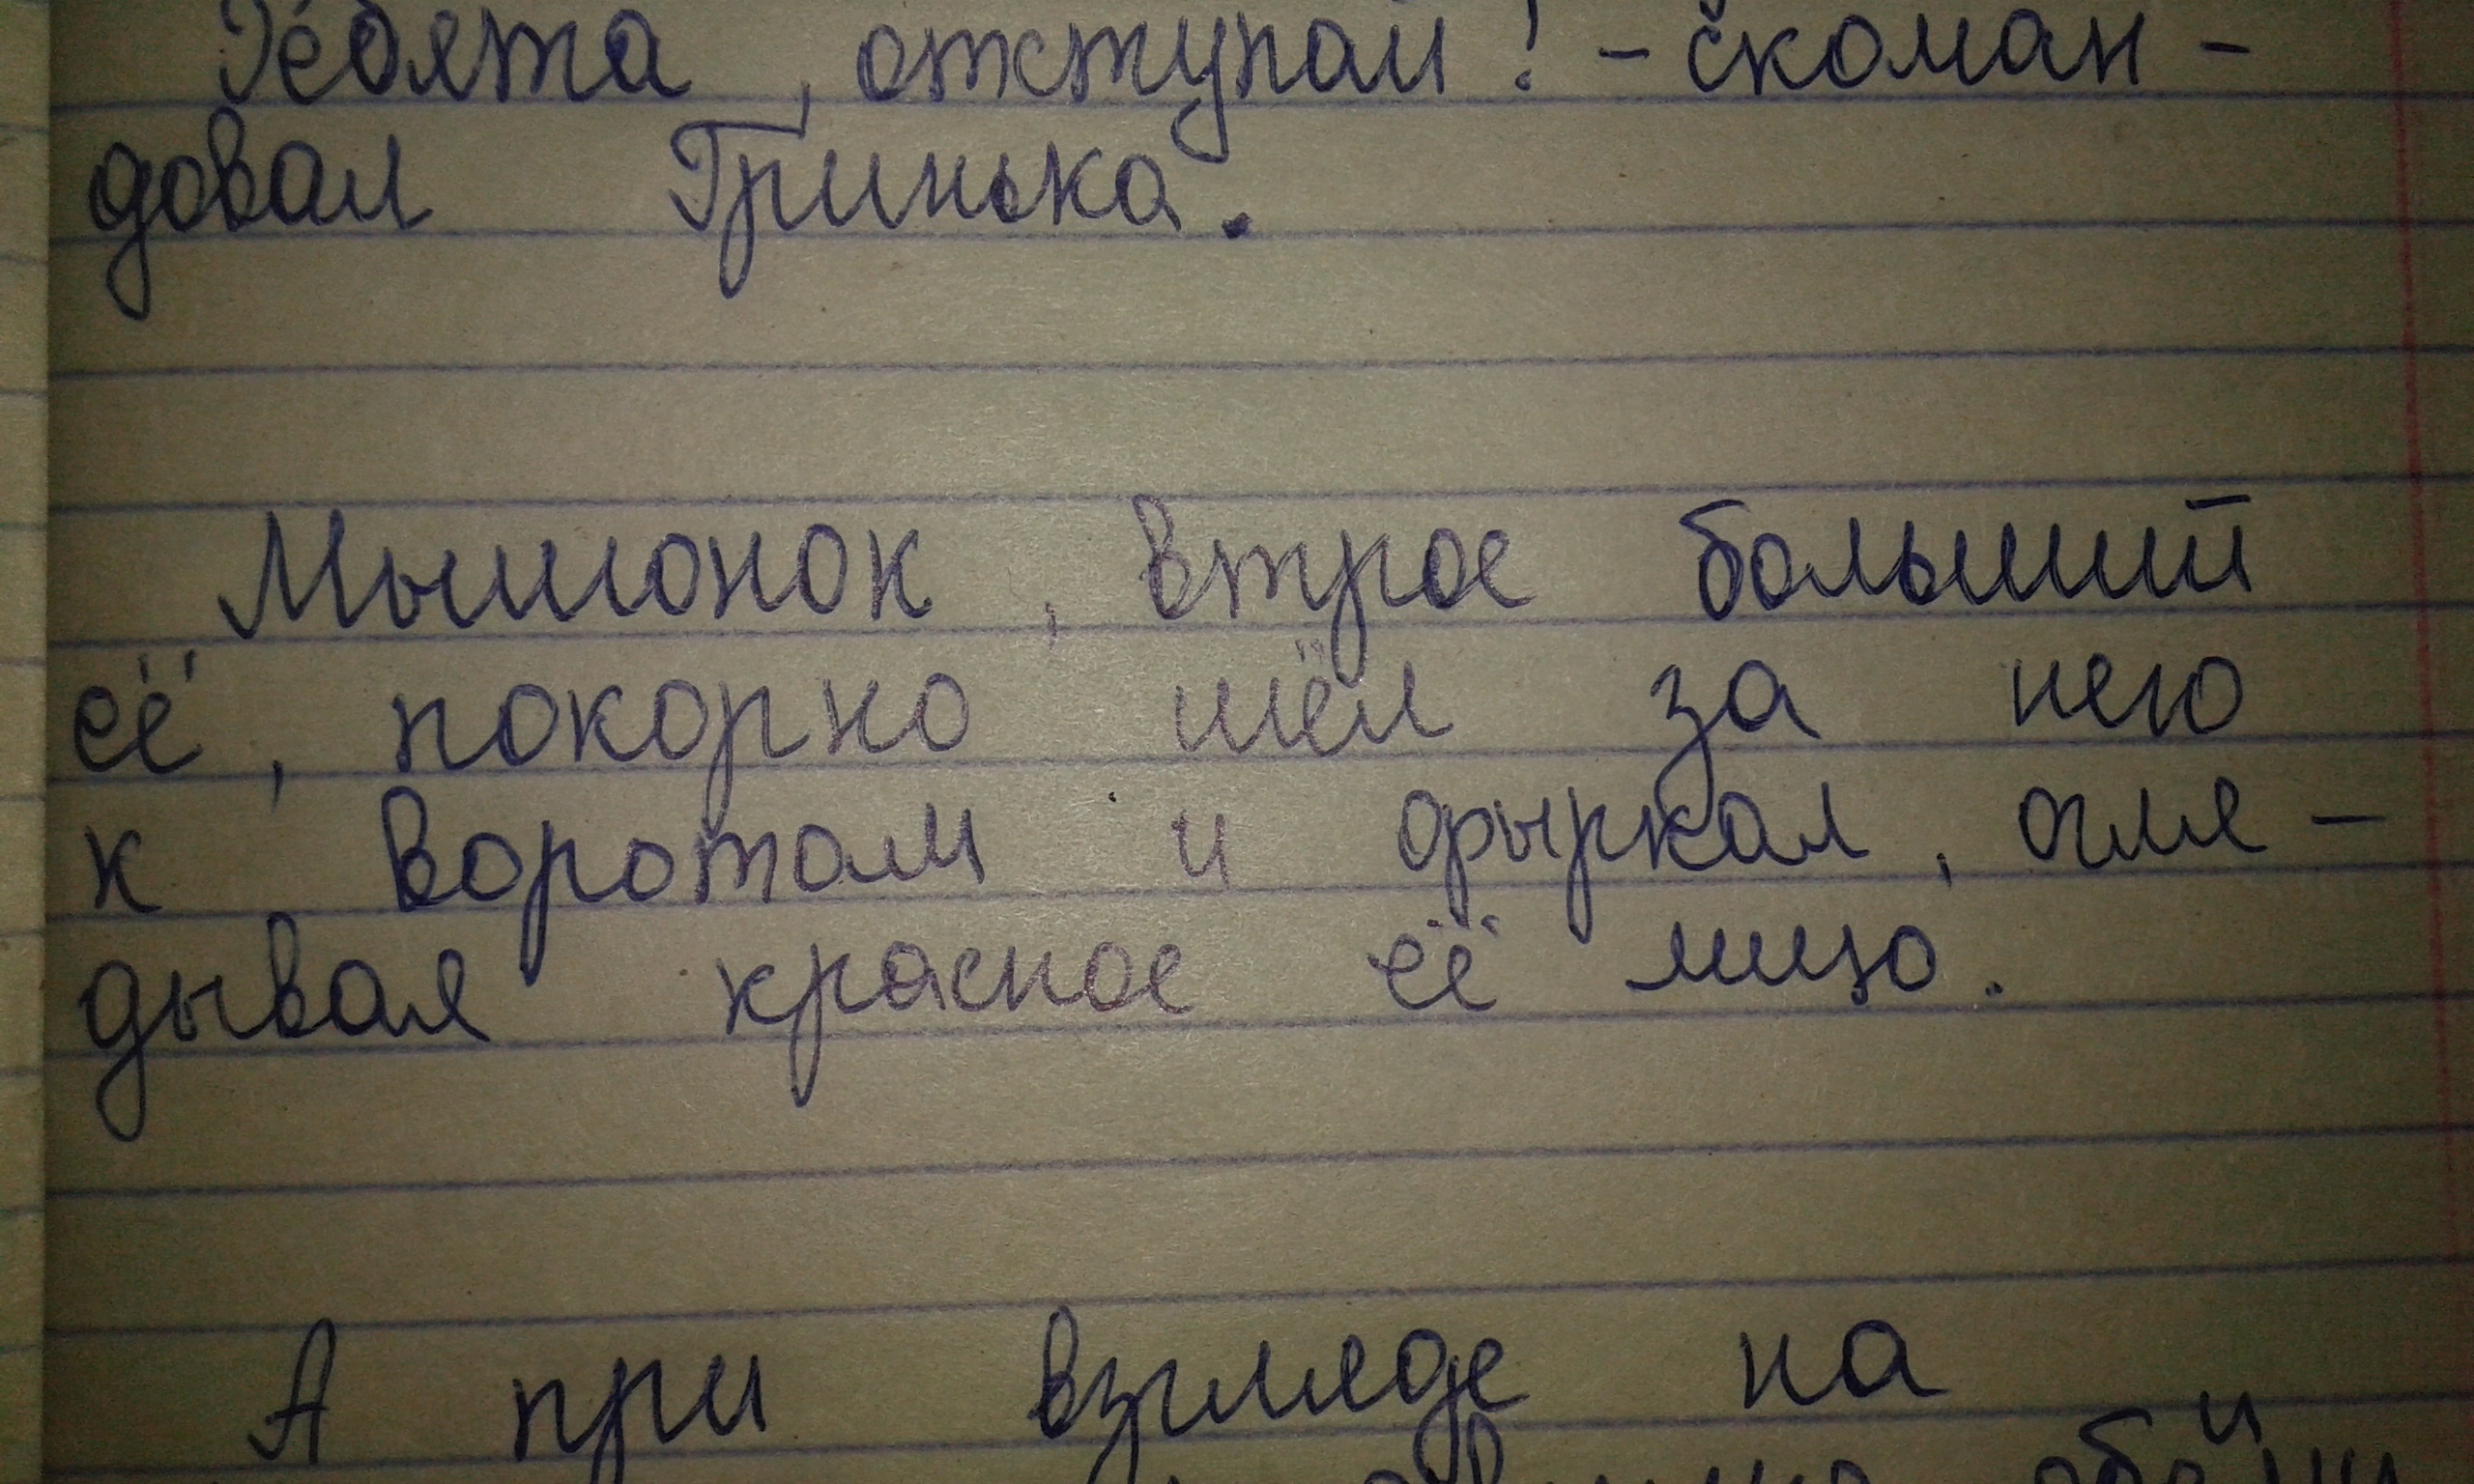 Ребята, отступай! - скоман-
довал Гринька.
Мышонок, втрое больший
её, покорно шёл за нею
к воротам и фыркал, огля-
дывая красное её лицо.
А при взгляде на